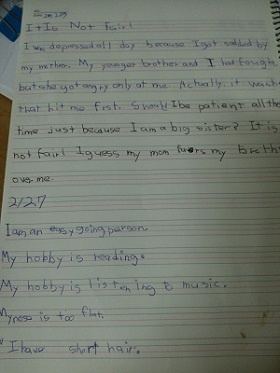 It Is Not Fair!
I was depressed all day because I got scolded by
my mother. My younger brother and I had fought
but she got angry only at me. Actually, it was he
that hit me first. Should I be patient all the
time just because I am a big sister? It is
not fair! I guess my mom favors my brother
over me.
2/27
I am an easy going person.
My hobby is reading.
My hobby is listening to music.
My nose is too flat.
I have short hair.